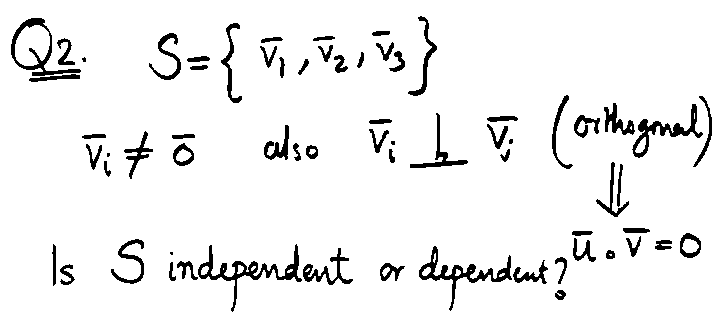 Q2. S = { v̄₁, v̄₂, v̄₃ }
v̄ᵢ ≠ ō also v̄ᵢ ⊥ v̄ⱼ (orthogonal)
⇓
Is S independent or dependent? ū . v̄ = 0